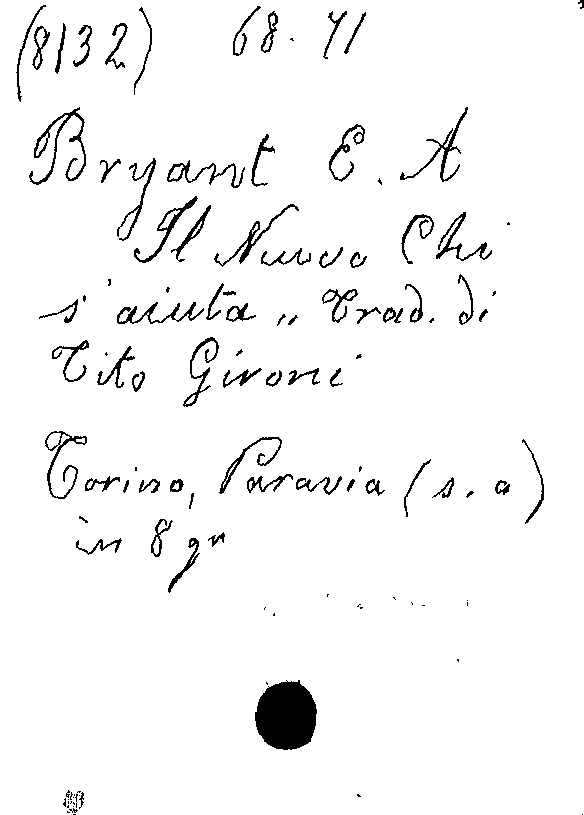 (8132) 68.71
Bryant E. A
Il Nuovo Chi
s'aiuta „ Trad. di
Tito Gironi
Torino, Paravia (s. a)
in 8 gr